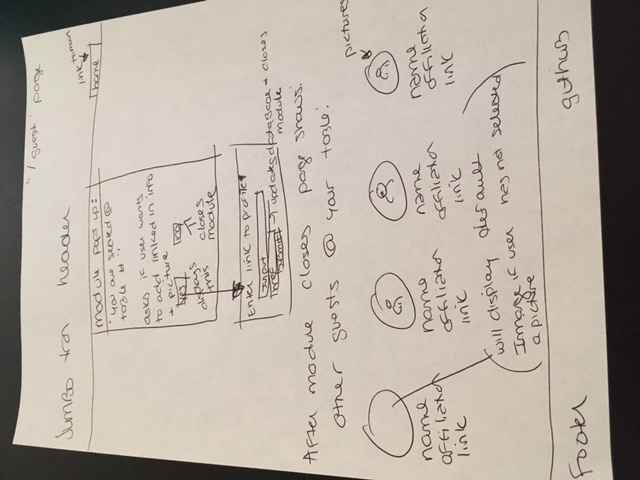 "/guest" page
Jumbo tron header
link to main
home
module pops up:
"you are seated @
table #"
asks if user wants
to add linked in info
+ picture
yes
no
displays
this
closes
module
Enter link to profile
Input
href
submit → updates database + closes
module
After module closes page shows:
Other guests @ your table:
pictures
name
affiliation
link
name
affiliation
link
name
affiliation
link
name
affiliation
link
will display default
Image if user has not selected
a picture
Footer
github